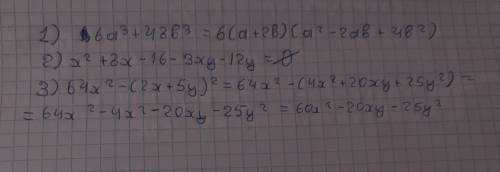 1) 6a³ + 48в³ = 6(a+2в)(a² - 2aв + 4в²)
2) x² + 8x - 16 - 3xy - 12y =
3) 64x² - (2x + 5y)² = 64x² - (4x² + 20xy + 25y²) =
= 64x² - 4x² - 20xy - 25y² = 60x² - 20xy - 25y²